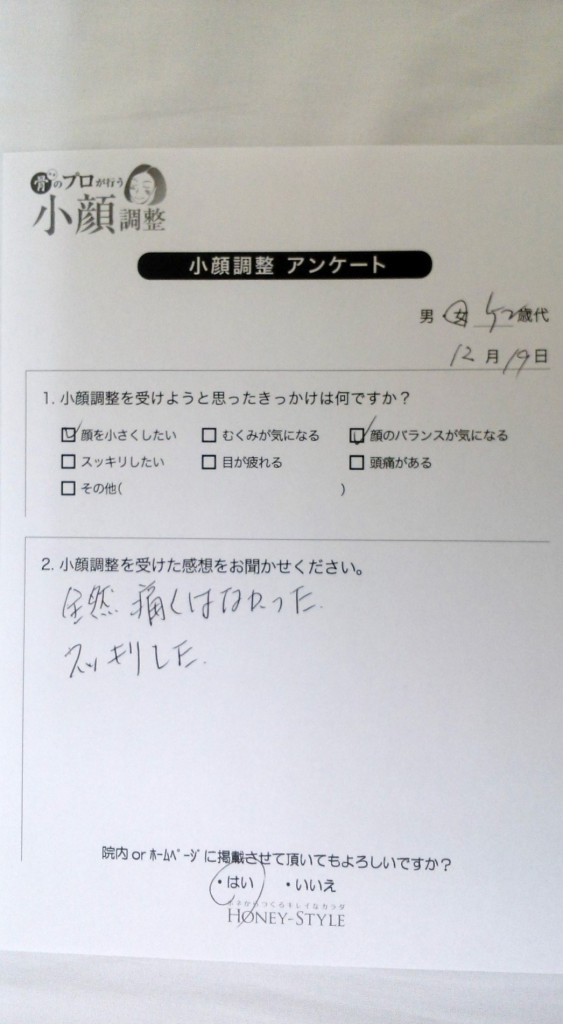 骨のプロが行う
小顔調整
小顔調整 アンケート
男 女 歳代
12月19日
1. 小顔調整を受けようと思ったきっかけは何ですか？
顔を小さくしたい むくみが気になる 顔のバランスが気になる
スッキリしたい 目が疲れる 頭痛がある
その他( )
2. 小顔調整を受けた感想をお聞かせください。
全然痛くはなかった.
スッキリした.
院内 or ﾎｰﾑﾍﾟｰｼﾞに掲載させて頂いてもよろしいですか？
・はい ・いいえ
HONEY-STYLE